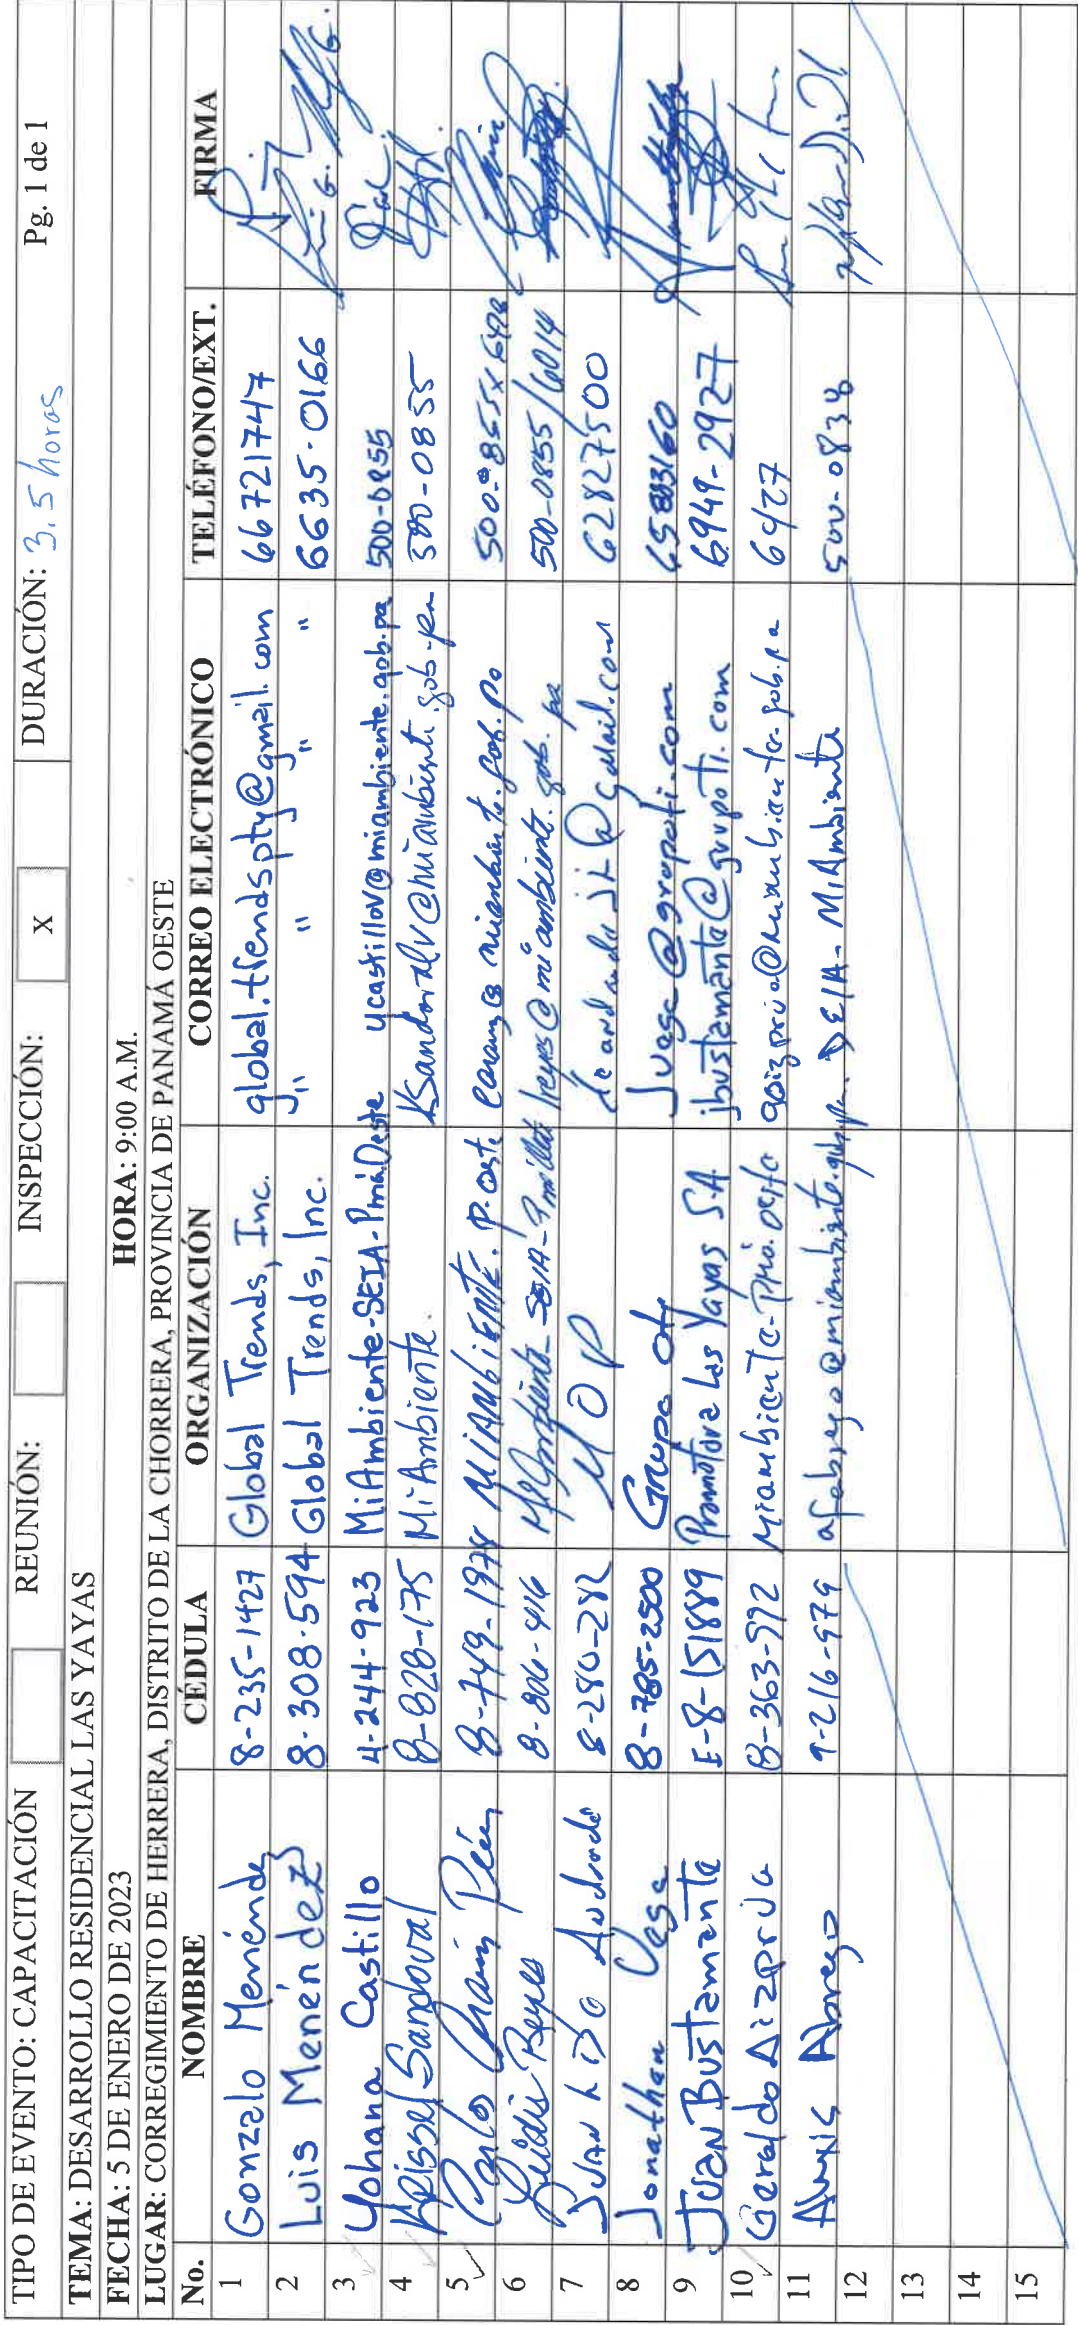 TIPO DE EVENTO: CAPACITACIÓN REUNIÓN: INSPECCIÓN: X DURACIÓN: 3.5 horas Pg. 1 de 1
TEMA: DESARROLLO RESIDENCIAL LAS YAYAS
FECHA: 5 DE ENERO DE 2023 HORA: 9:00 A.M.
LUGAR: CORREGIMIENTO DE HERRERA, DISTRITO DE LA CHORRERA, PROVINCIA DE PANAMÁ OESTE
No. NOMBRE CÉDULA ORGANIZACIÓN CORREO ELECTRÓNICO TELÉFONO/EXT. FIRMA
1 Gonzalo Menéndez 8-235-1427 Global Trends, Inc. global.trendspty@gmail.com 66721747
2 Luis Menéndez 8-308-594 Global Trends, Inc. " " " " 6635-0166
3 Yohana Castillo 4-244-923 MiAmbiente-SEIA-PmáOeste ycastillov@miambiente.gob.pa 500-0855
4 Krissel Sandoval 8-828-175 MiAmbiente. ksandoval@miambiente.gob.pa 500-0855
5 Carlos 8-749-1978 MIAMBIENTE. P. Oeste 500-0855x6498
6 Reyes 8-806-416 MiAmbiente-SEIA- lreyes@miambiente.gob.pa 500-0855/6014
7 Juan De Andrade 8-280-282 MOP 62827500
8 Jonathan Vega 8-785-2500 Grupo Oti Jvega@grupoti.com 65883160
9 Juan Bustamante E-8-151889 Promotora Las Yayas S.A jbustamante@grupoti.com 6949-2927
10 Geraldo Aizprúa 8-363-992 Miambiente-Pmá. Oeste gaizprua@miambiente.gob.pa 6427
11 Abrego 9-216-979 aabrego@miambiente.gob.pa DEIA-MiAmbiente 500-0838
12
13
14
15